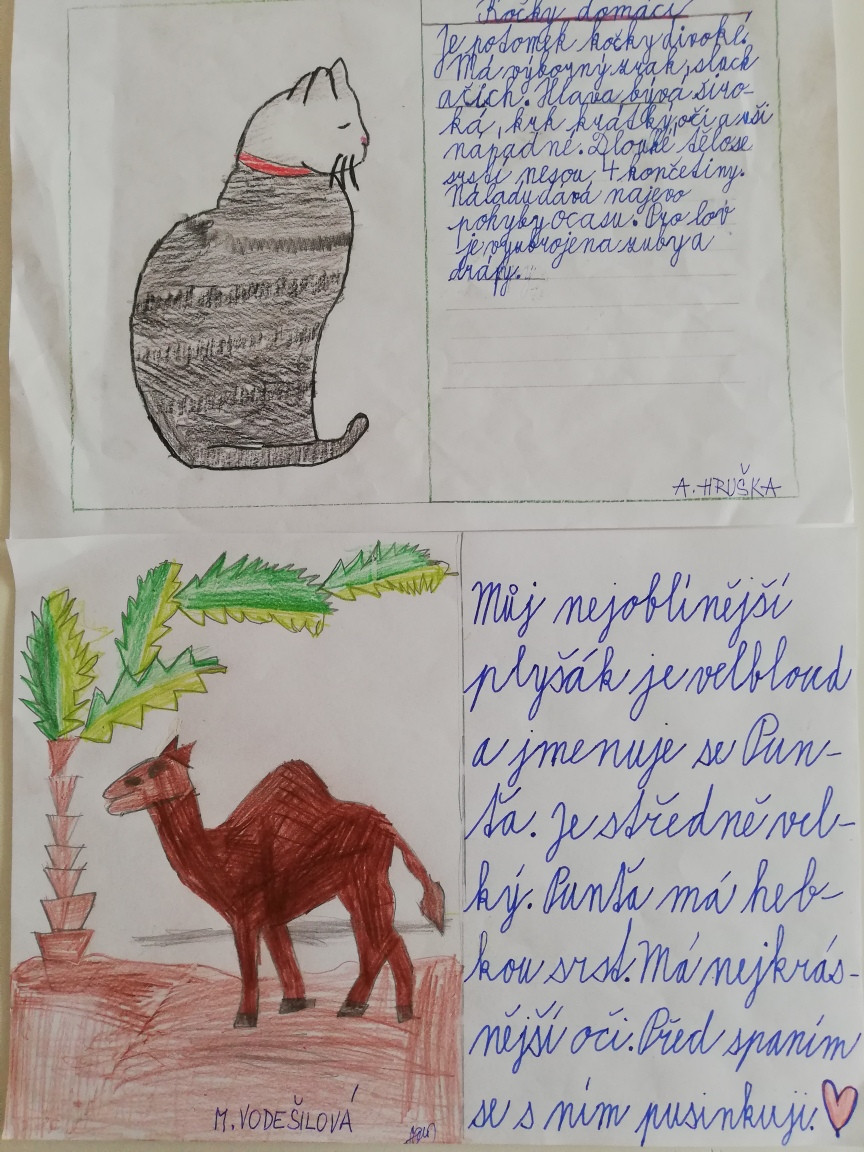 Kočky domácí
Je potomek kočky divoké.
Má výborný zrak, sluch
a čich. Hlava bývá širo-
ká, krk krátký, oči a uši
nápadné. Dlouhé tělo se
srstí nesou 4 končetiny.
Náladu dává najevo
pohyby ocasu. Pro lov
je vyzbrojena zuby a
drápy.
A. HRUŠKA
Můj nejoblínější
plyšák je velbloud
a jmenuje se Pun-
ťa. Je středně vel-
ký. Punťa má heb-
kou srst. Má nejkrás-
nější oči. Před spaním
se s ním pusinkuji.
M. VODEŠILOVÁ